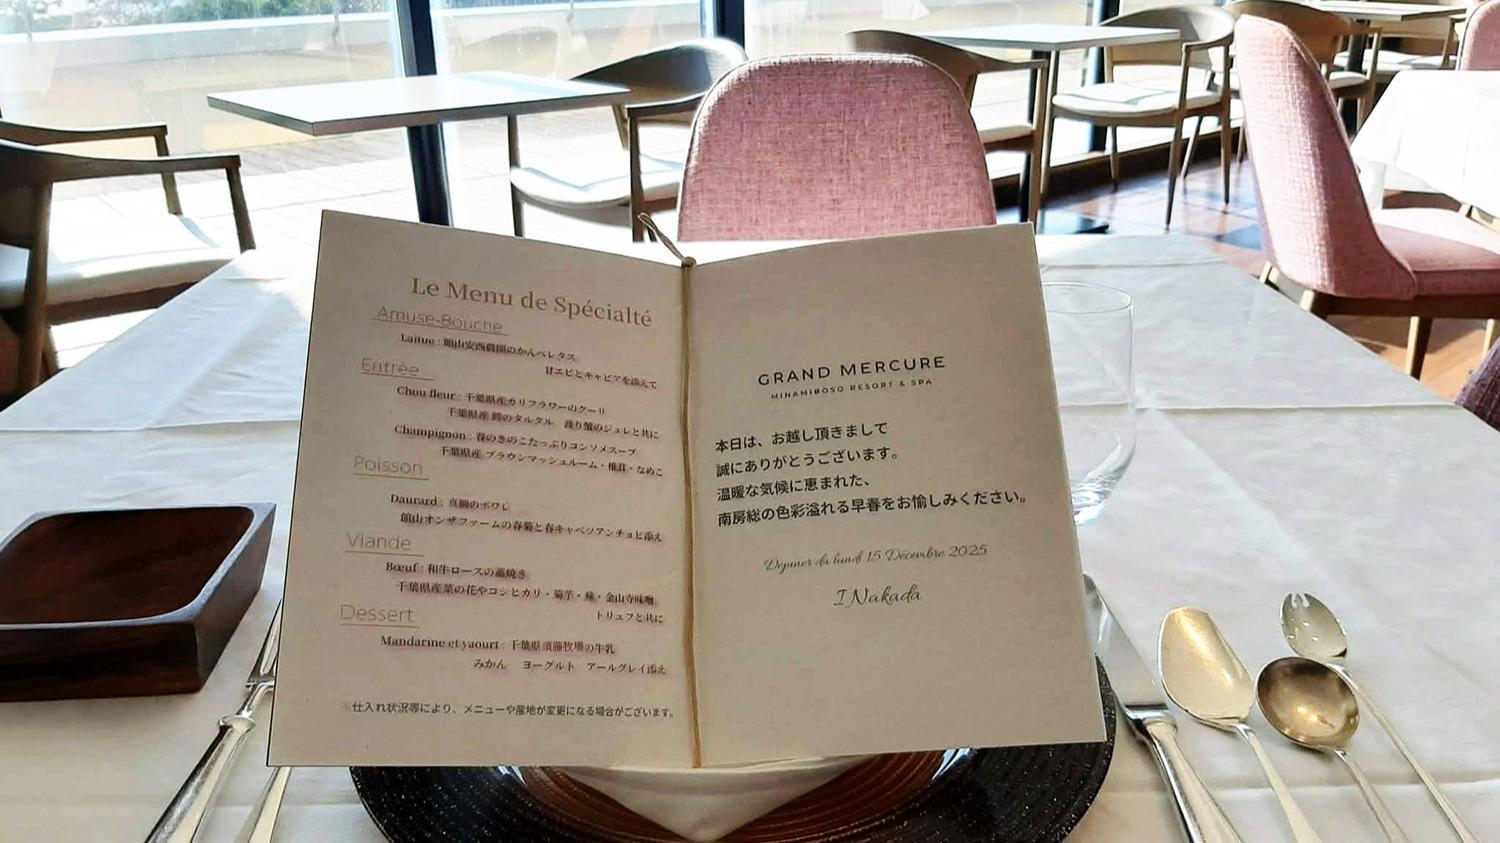 Le Menu de Spécialté
Amuse-Bouche
Laitue : 館山安西農園のかんべレタス
甘エビとキャビアを添えて
Entrée
Chou fleur : 千葉県産カリフラワーのクーリ
千葉県産 鯵のタルタル 渡り蟹のジュレと共に
Champignon : 春のきのこたっぷりコンソメスープ
千葉県産 ブラウンマッシュルーム・椎茸・なめこ
Poisson
Daurard : 真鯛のポワレ
館山オンザファームの春菊と春キャベツアンチョビ添え
Viande
Bœuf : 和牛ロースの藁焼き
千葉県産菜の花やコシヒカリ・菊芋・蕪・金山寺味噌
トリュフと共に
Dessert
Mandarine et yaourt : 千葉県須藤牧場の牛乳
みかん ヨーグルト アールグレイ添え
※仕入れ状況等により、メニューや産地が変更になる場合がございます。
GRAND MERCURE
MINAMIBOSO RESORT & SPA
本日は、お越し頂きまして
誠にありがとうございます。
温暖な気候に恵まれた、
南房総の色彩溢れる早春をお愉しみください。
Dejuner du lundi 15 Décembre 2025
I.Nakada